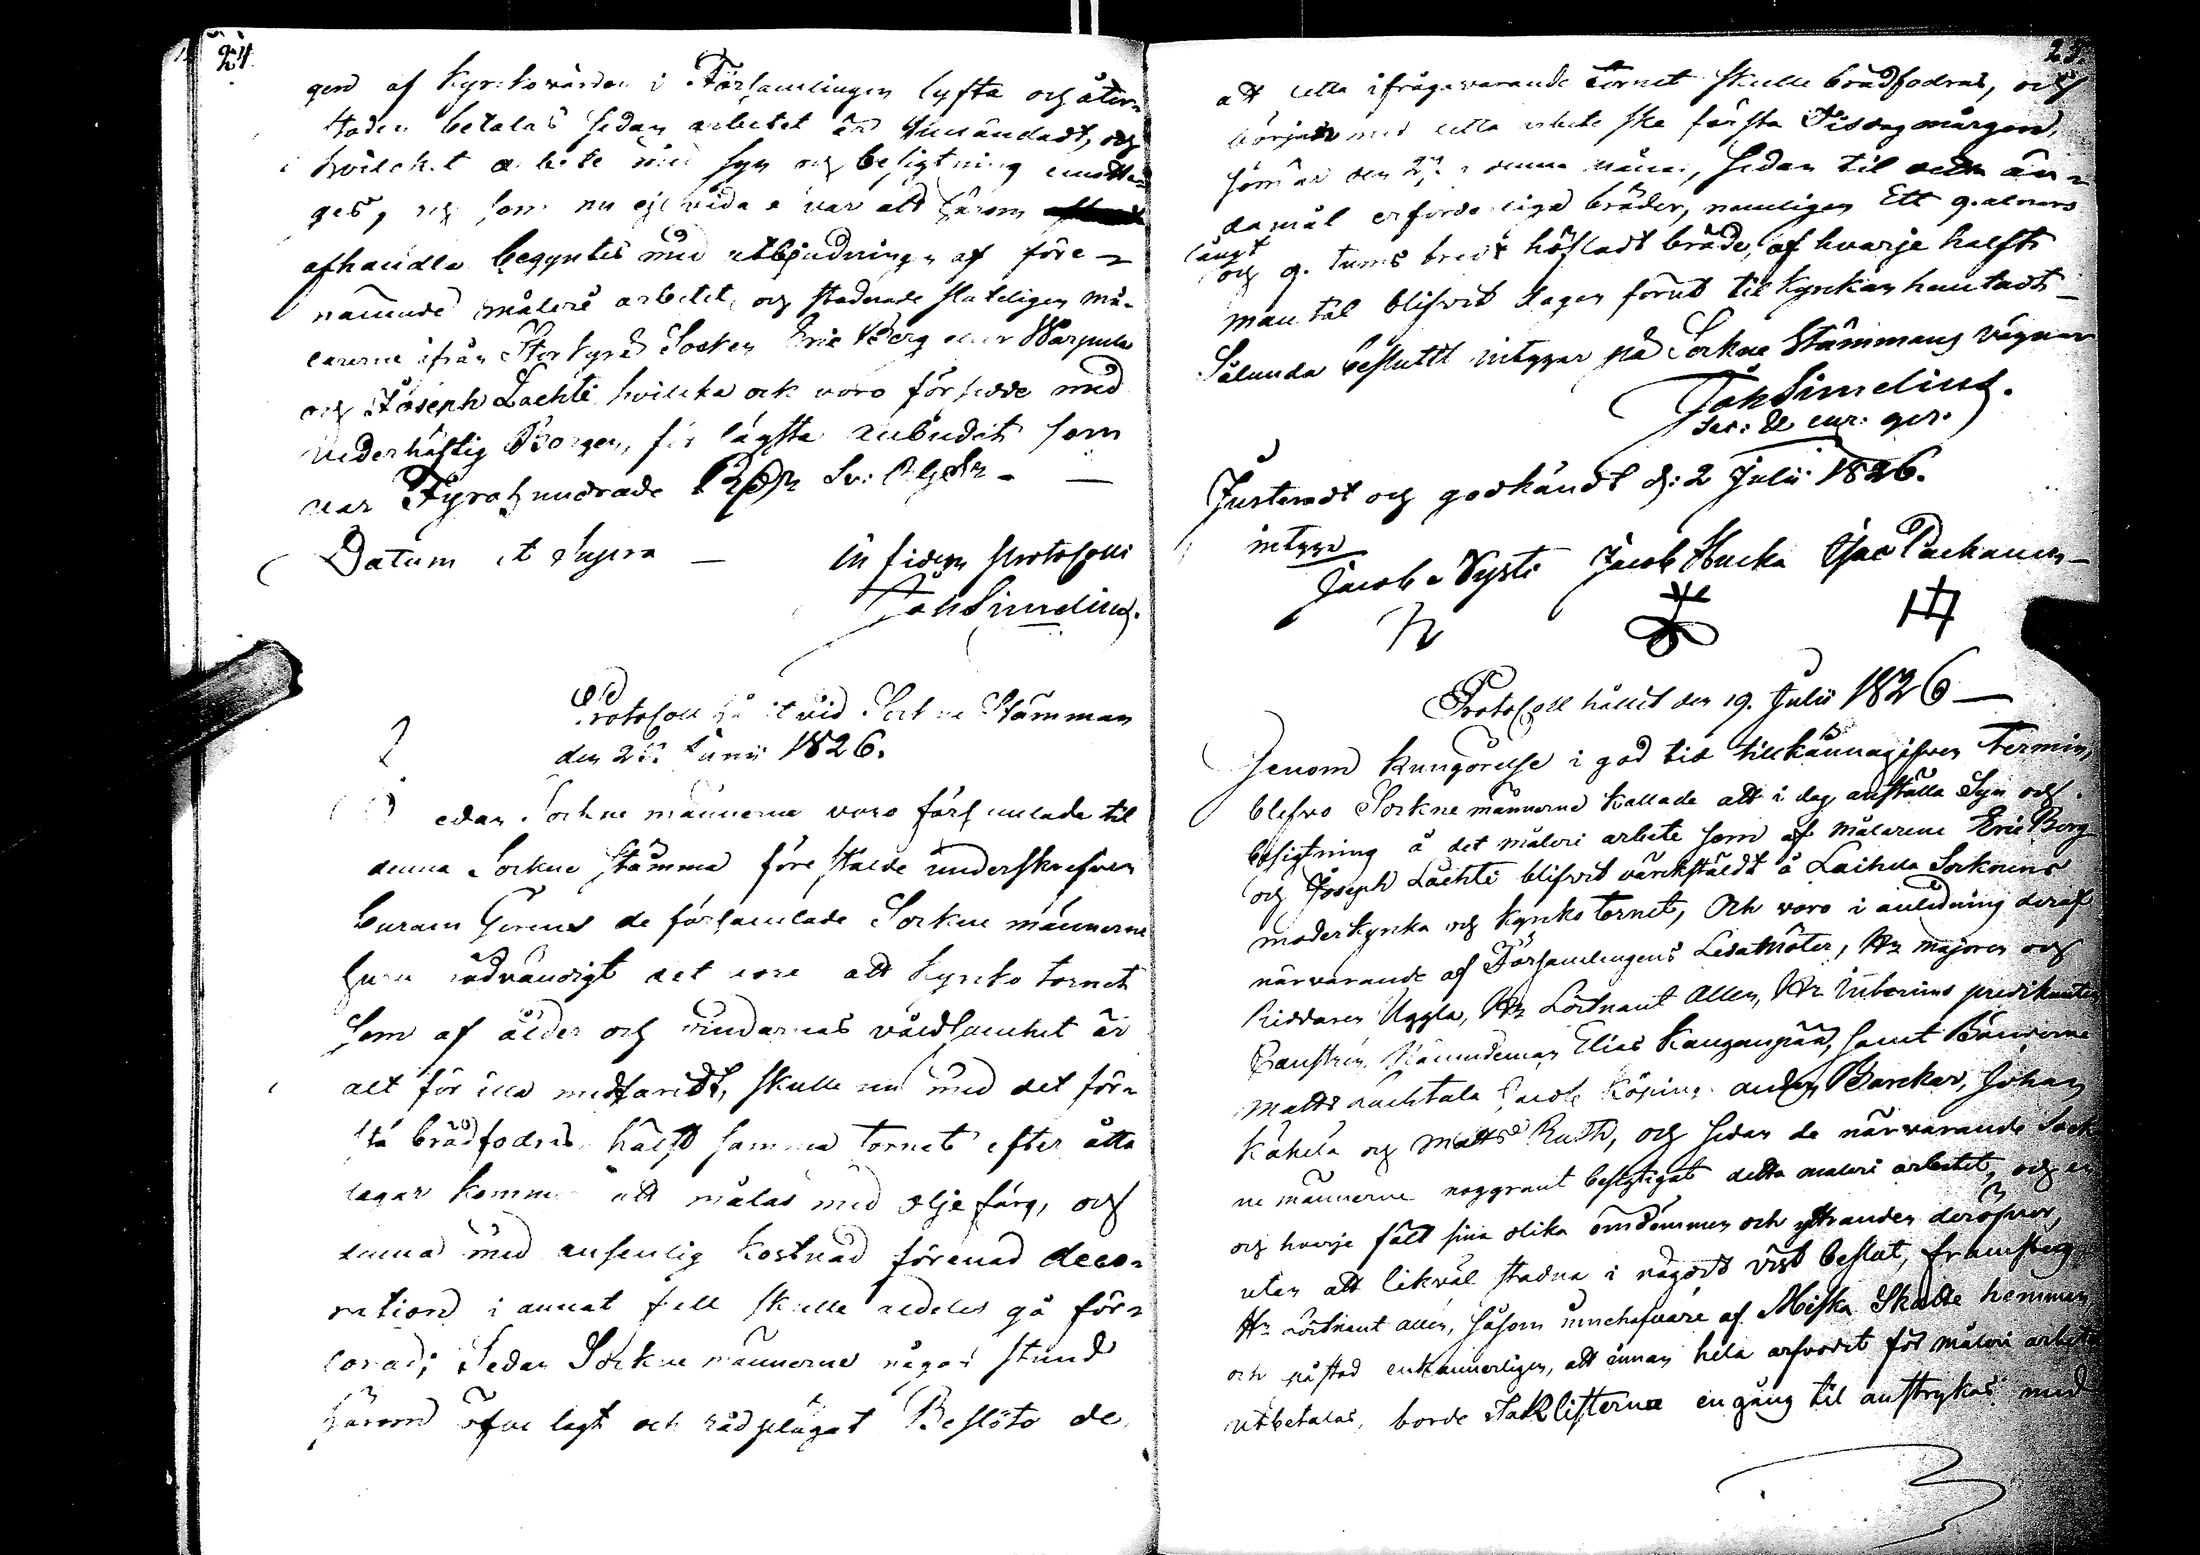 24.
gen af Kyrkovärden i Församlingen lyfta och åter-
stoden betalas sedan arbetet är fulländadt, och
hvilcket arbete med syn och besigtning emotta-
ges, och som nu ej vidare var att härom
afhandla begyntes med utbjudningen af före-
nämnde måleri arbetet, och stadnade sluteligen må-
larena ifrån Storkyro Socken Eric Berg eller Warpula
och Joseph Lachti hvilcka ock voro försedde med
vederhäftig Borgen, för lägsta anbudet som
var Fyrahundrade Rdr Sv: Rgds –
Datum et Supra – in fidem Protocolli
Joh Simelius.
Protocoll hållit vid Sockne Stämman
den 25 Junii 1826.
Sedan Sockne männerna voro församlade til
denna Sockne stämma före stälde underskrefven
Curam Gerens de församlade Sockne männerne
huru nödvändigt det vore att Kyrko tornet
som af ålder och vindarnas våldsamhet är
alt för illa medfaridt, skulle nu med det för-
sta brädfodras, hälst samma tornet efter åtta
dagar kommer att målas med oljefärg, och
denna med ansenlig kostnad förenad deco-
ration i annat fall skulle aldeles gå för-
lorad; Sedan Sockne männerne någon stund
härom öfverlagt och rådplägat Beslöto de
25.
att detta ifrågavarande tornet skulle brädfodras, och
början med detta arbete ske första Tisdag mårgon,
som är den 27 i denna månad, sedan til detta än-
damål erforderliga bräder, nemligen Ett 9. alnars
långt
och 9. tums bredt höfladt bräde, af hvarje halft
mantal blifvit dagen förut til Kyrkan hemtadt –
Sålunda beslutit intygar på Sockne Stämmans vägnar
Joh Simelius.
Sac: & cur: ger.
Justeradt och godkändt d: 2 Julii 1826.
intyga
Jacob Nysti Jacob Hucka Isac Packanen –
Protocoll hållit den 19. Julii 1826 –
Genom kungörelse i god tid tillkännagifven termin,
blefvo Sockne männerne kallade att i dag anställa Syn och
besigtning å det måleri arbete som af målarene Eric Berg
och Joseph Lachti blifvit värckstäldt å Laihela Socknens
moderkyrka och Kyrko tornet, Och voro i anledning deraf
närvarande af Församlingens Ledamöter, Hr Majoren och
Riddaren Uggla, Hr Löitnant Allén, Hr Inbärnings predikanten
Nämndeman Elias Kauganpää, samt Bönderne
Matts Lachtala Jacob Köping anders Barckar, Johan
Kåhela och Matts Ruth, och sedan de närvarande Sock-
ne männerne noggrant besigtigat detta måleri arbetet, och en
och hvarje fält sina olika omdömmen och yttranden deröfver,
utan att likväl stadna i någodt vist beslut, framsteg
Hr Löitnant Allén, såsom innehafvare af Miska Skatte hemman,
och påstod enkannerligen, att innan hela arfvodet för måleri arbete
utbetalas, borde taklisterna en gång til anstrykas med